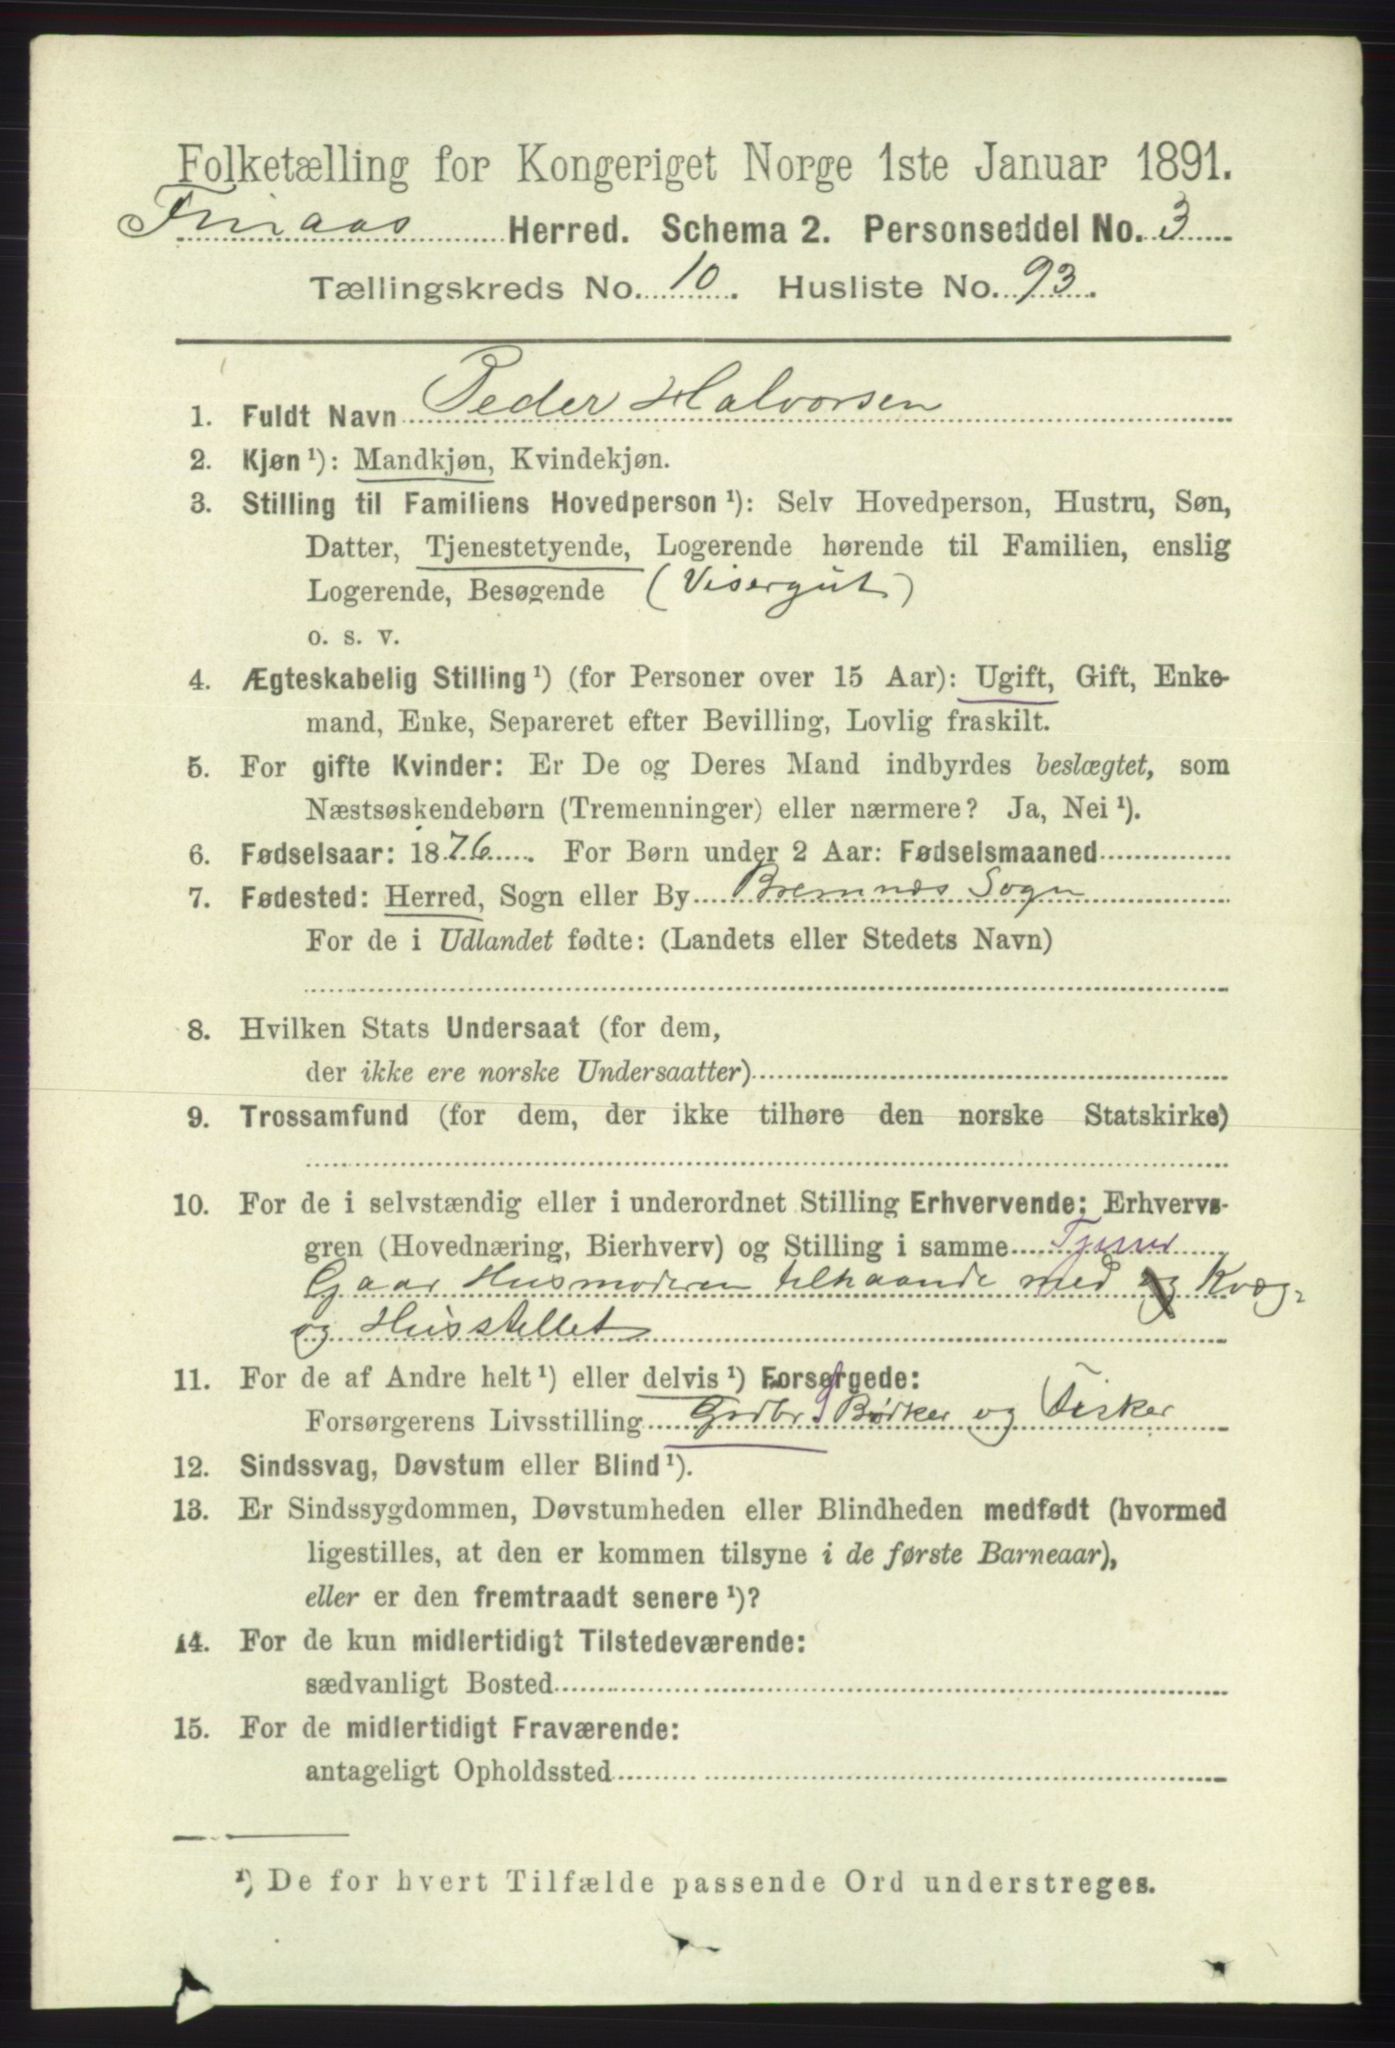 Folketælling for Kongeriget Norge 1ste Januar 1891.
Finaas Herred. Schema 2. Personseddel No. 3
Tællingskreds No. 10. Husliste No. 93.
1. Fuldt Navn Peder Halvorsen
2. Kjøn ¹): Mandkjøn, Kvindekjøn.
3. Stilling til Familiens Hovedperson ¹): Selv Hovedperson, Hustru, Søn,
Datter, Tjenestetyende, Logerende hørende til Familien, enslig
Logerende, Besøgende (Visergut)
o. s. v.
4. Ægteskabelig Stilling ¹) (for Personer over 15 Aar): Ugift, Gift, Enke-
mand, Enke, Separeret efter Bevilling, Lovlig fraskilt.
5. For gifte Kvinder: Er De og Deres Mand indbyrdes beslægtet, som
Næstsøskendebørn (Tremenninger) eller nærmere? Ja, Nei ¹).
6. Fødselsaar: 1876. For Børn under 2 Aar: Fødselsmaaned
7. Fødested: Herred, Sogn eller By Bremnæs Sogn
For de i Udlandet fødte: (Landets eller Stedets Navn)
8. Hvilken Stats Undersaat (for dem,
der ikke ere norske Undersaatter)
9. Trossamfund (for dem, der ikke tilhøre den norske Statskirke)
10. For de i selvstændig eller i underordnet Stilling Erhvervende: Erhvervs-
gren (Hovednæring, Bierhverv) og Stilling i samme Tjener
Gaar Husmoderen tilhaande med og Kvæg-
og Husstellet
11. For de af Andre helt ¹) eller delvis ¹) Forsørgede:
Forsørgerens Livsstilling Grdbr Bødker og Fisker
12. Sindssvag, Døvstum eller Blind ¹).
13. Er Sindssygdommen, Døvstumheden eller Blindheden medfødt (hvormed
ligestilles, at den er kommen tilsyne i de første Barneaar),
eller er den fremtraadt senere ¹)?
14. For de kun midlertidigt Tilstedeværende:
sædvanligt Bosted
15. For de midlertidigt Fraværende:
antageligt Opholdssted
¹) De for hvert Tilfælde passende Ord understreges.